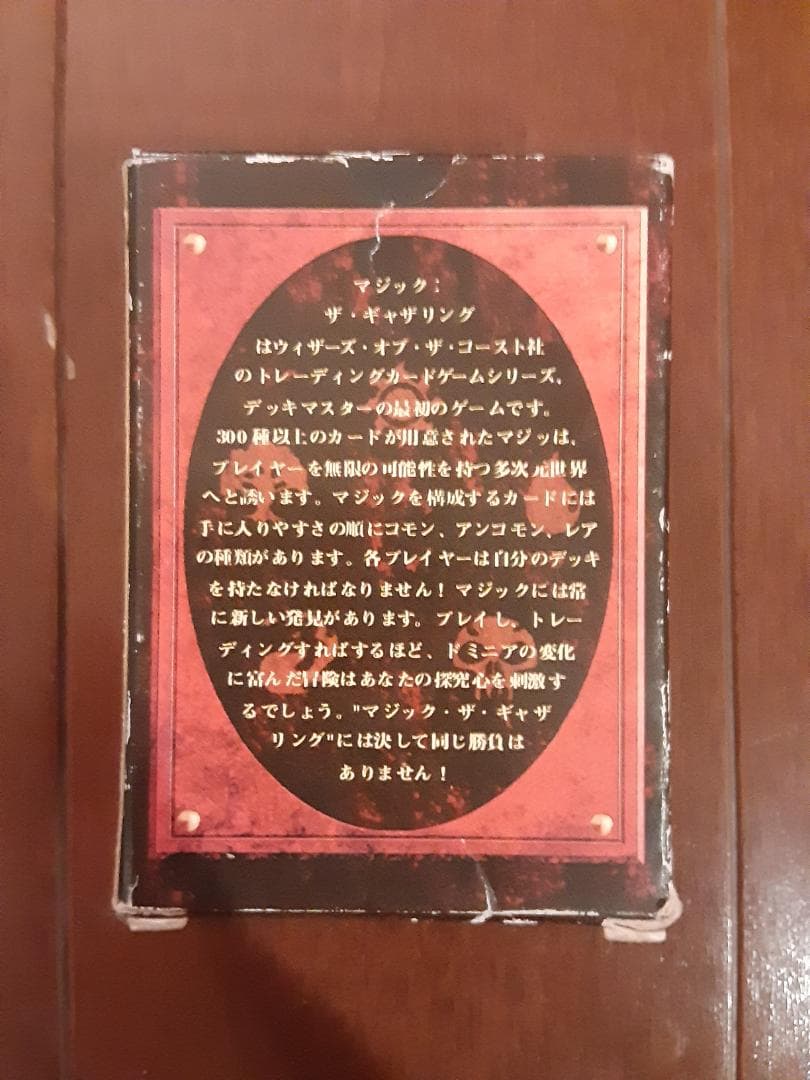 マジック：
ザ・ギャザリング
はウィザーズ・オブ・ザ・コースト社
のトレーディングカードゲームシリーズ、
デッキマスターの最初のゲームです。
300種以上のカードが用意されたマジッは、
プレイヤーを無限の可能性を持つ多次元世界
へと誘います。マジックを構成するカードには
手に入りやすさの順にコモン、アンコモン、レア
の種類があります。各プレイヤーは自分のデッキ
を持たなければなりません！マジックには常
に新しい発見があります。プレイし、トレー
ディングすればするほど、ドミニアの変化
に富んだ冒険はあなたの探究心を刺激す
るでしょう。"マジック・ザ・ギャザ
リング"には決して同じ勝負は
ありません！